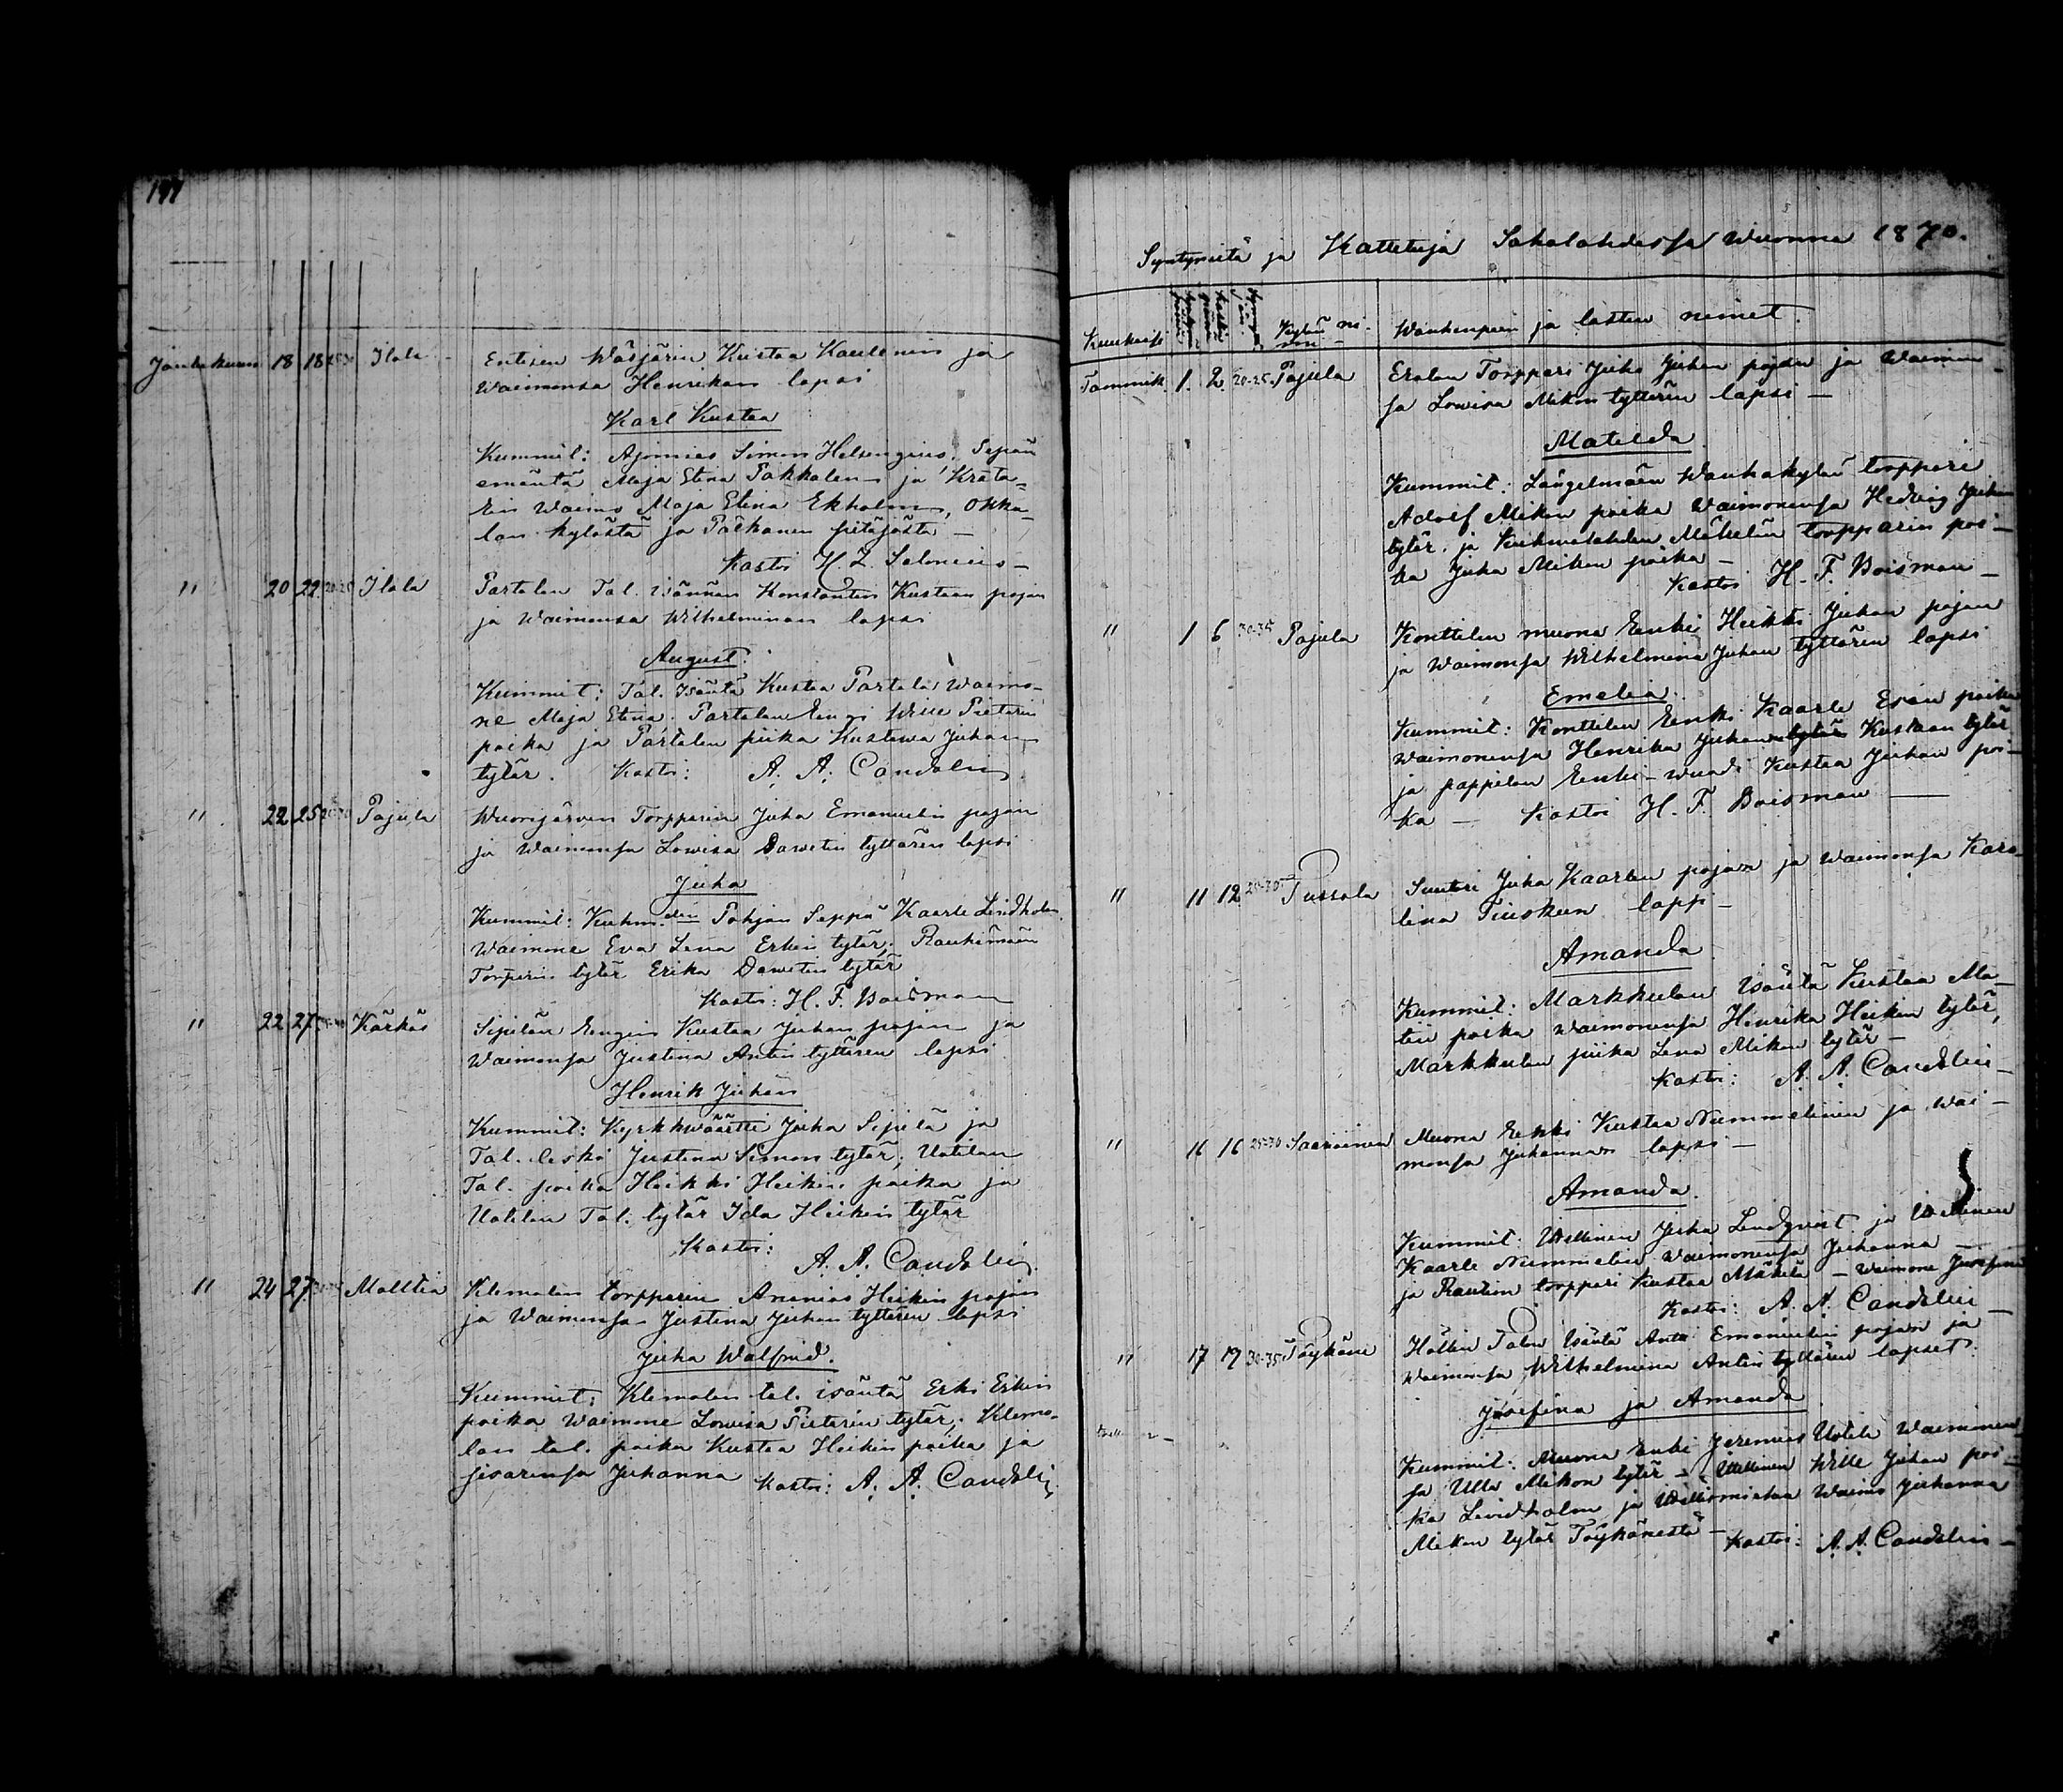 Joulukuun 18 18 Ilola Entisen Wärjärin Kustaa Kauleniin ja
Waimonsa Henrikan lapsi
Karl Kustaa
Kummit: Ajomies Simon Helsengius, Sepän
emäntä Maja Stina Pakkalen ja Kräta-
rin Waimo Maja Stina Ekholm, Okka-
lan kylästä ja Pälkänen pitäjästä —
Kastoi H. Z. Salonius —
" 20 22 Ilola Partolan Tal. Isännän Konstantin Kustaan pojan
ja Waimonsa Wilhelminan lapsi
August.
Kummit: Tal. Isäntä Kustaa Partola Waimo-
ne Maja Stina. Partolan Rengi Wille Pieterin
poika ja Partolan piika Kustawa Juhan
tytär. Kastoi: A. A. Candolin
" 22 25 Pajula Wuorijärven Torpparin Juha Emanuelin pojan
ja Waimonsa Lowisa Dawetin tyttären lapsi
Juha
Kummit: Kuhm:den Pohjan Seppä Kaarle Lindholm
Waimone Eva Lena Erkin tytär, Rauhamäen
Torparin tytär Erika Dawetin tytär
Kastoi: H. F. Boisman
" 22 27 Kärkäs Sipilän Rengin Kustaa Juhan pojan ja
Waimonsa Justina Antin tyttären lapsi
Henrik Juhan
Kummit: Kyrkkwäärtti Juha Sipilä ja
Tal. leski Justina Simon tytär, Uotilan
Tal. poika Heikki Heikin poika ja
Uotilan Tal. tytär Ida Heikin tytär
Kastoi:
A. A. Candolin
" 24 27 Molttia Klemolan torpparin Ananias Heikin pojan
ja Waimonsa Justina Juhan tyttären lapsi
Juha Walfrid.
Kummit: Klemolan tal. isäntä Erki Erkin
poika Waimone Lowisa Pieterin tytär. Klemo-
lan tal. poika Kustaa Heikin poika ja
sisarensa Juhanna Kastoi: A. A. Candolin
Syntyneitä ja Kastettuja Sahalahdessa Wuonna 1870.
Kuukausi Kylän ni- Wanhempein ja lasten nimet.
Tammik. 1 2 20-25 Pajula Erolan Torppari Juho Juhan pojan ja Waimon
sa Lowisa Mikon tyttären lapsi —
Matilda
Kummit: Längelmäen Wanhakylän torppari
Adolf Mikon poika Waimonensa Hedvig Juhan
tytär, ja Kuhmalahden Mäkelän torpparin poi-
ka Juha Mikon poika —
Kastoi H. F. Boisman —
" 1 6 30-35 Pajula Konttilan muona Renki Heikki Juhan pojan
ja Waimonsa Wilhelmina Juhan tyttären lapsi
Emelia
Kummit: Konttilan Renki Kaarle Evan poika
Waimonensa Henrika Juhan tytär Kustaan tytär
ja pappilan Renki-wuodi Kustaa Juhan poi-
ka — Kastoi H. F. Boisman —
" 11 12 Pussola Suutari Juha Kaarlen pojan ja Waimonsa Karo-
lina Tiusken lapsi —
Amanda
Kummit: Markkulan Isäntä Kustaa Ma-
tin poika Waimonensa Henrika Heikin tytär,
Markkulan piika Lena Mikon tytär —
Kastoi: A. A. Candolin —
" 16 16 25-30 Saarioinen Muona Renki Kustaa Nummelinin ja Wai-
monsa Juhannan lapsi —
Amanda.
Kummit: Itellinen Juha Lindqvist ja Itellinen
Kaarle Nummelin Waimonensa Juhanna —
ja Raution torppari Kustaa Mäkelä — Waimone Josefina
Kastoi: A. A. Candolin —
" 17 19 30-35 Töyhäne Hollin Talon Isäntä Anti Emanuelin pojan ja
Waimonsa Wilhelmina Antin tyttären lapset.
Josefina ja Amanda
Kummit: Muona Renki Jeremias Uotila Waimonen
sa Ulla Mikon tytär — Itellinen Wille Juhan poi-
ka Lindholm ja Itellismiehen Waimo Juhanna
Mikon tytär Töyhänestä — Kastoi: A. A. Candolin —